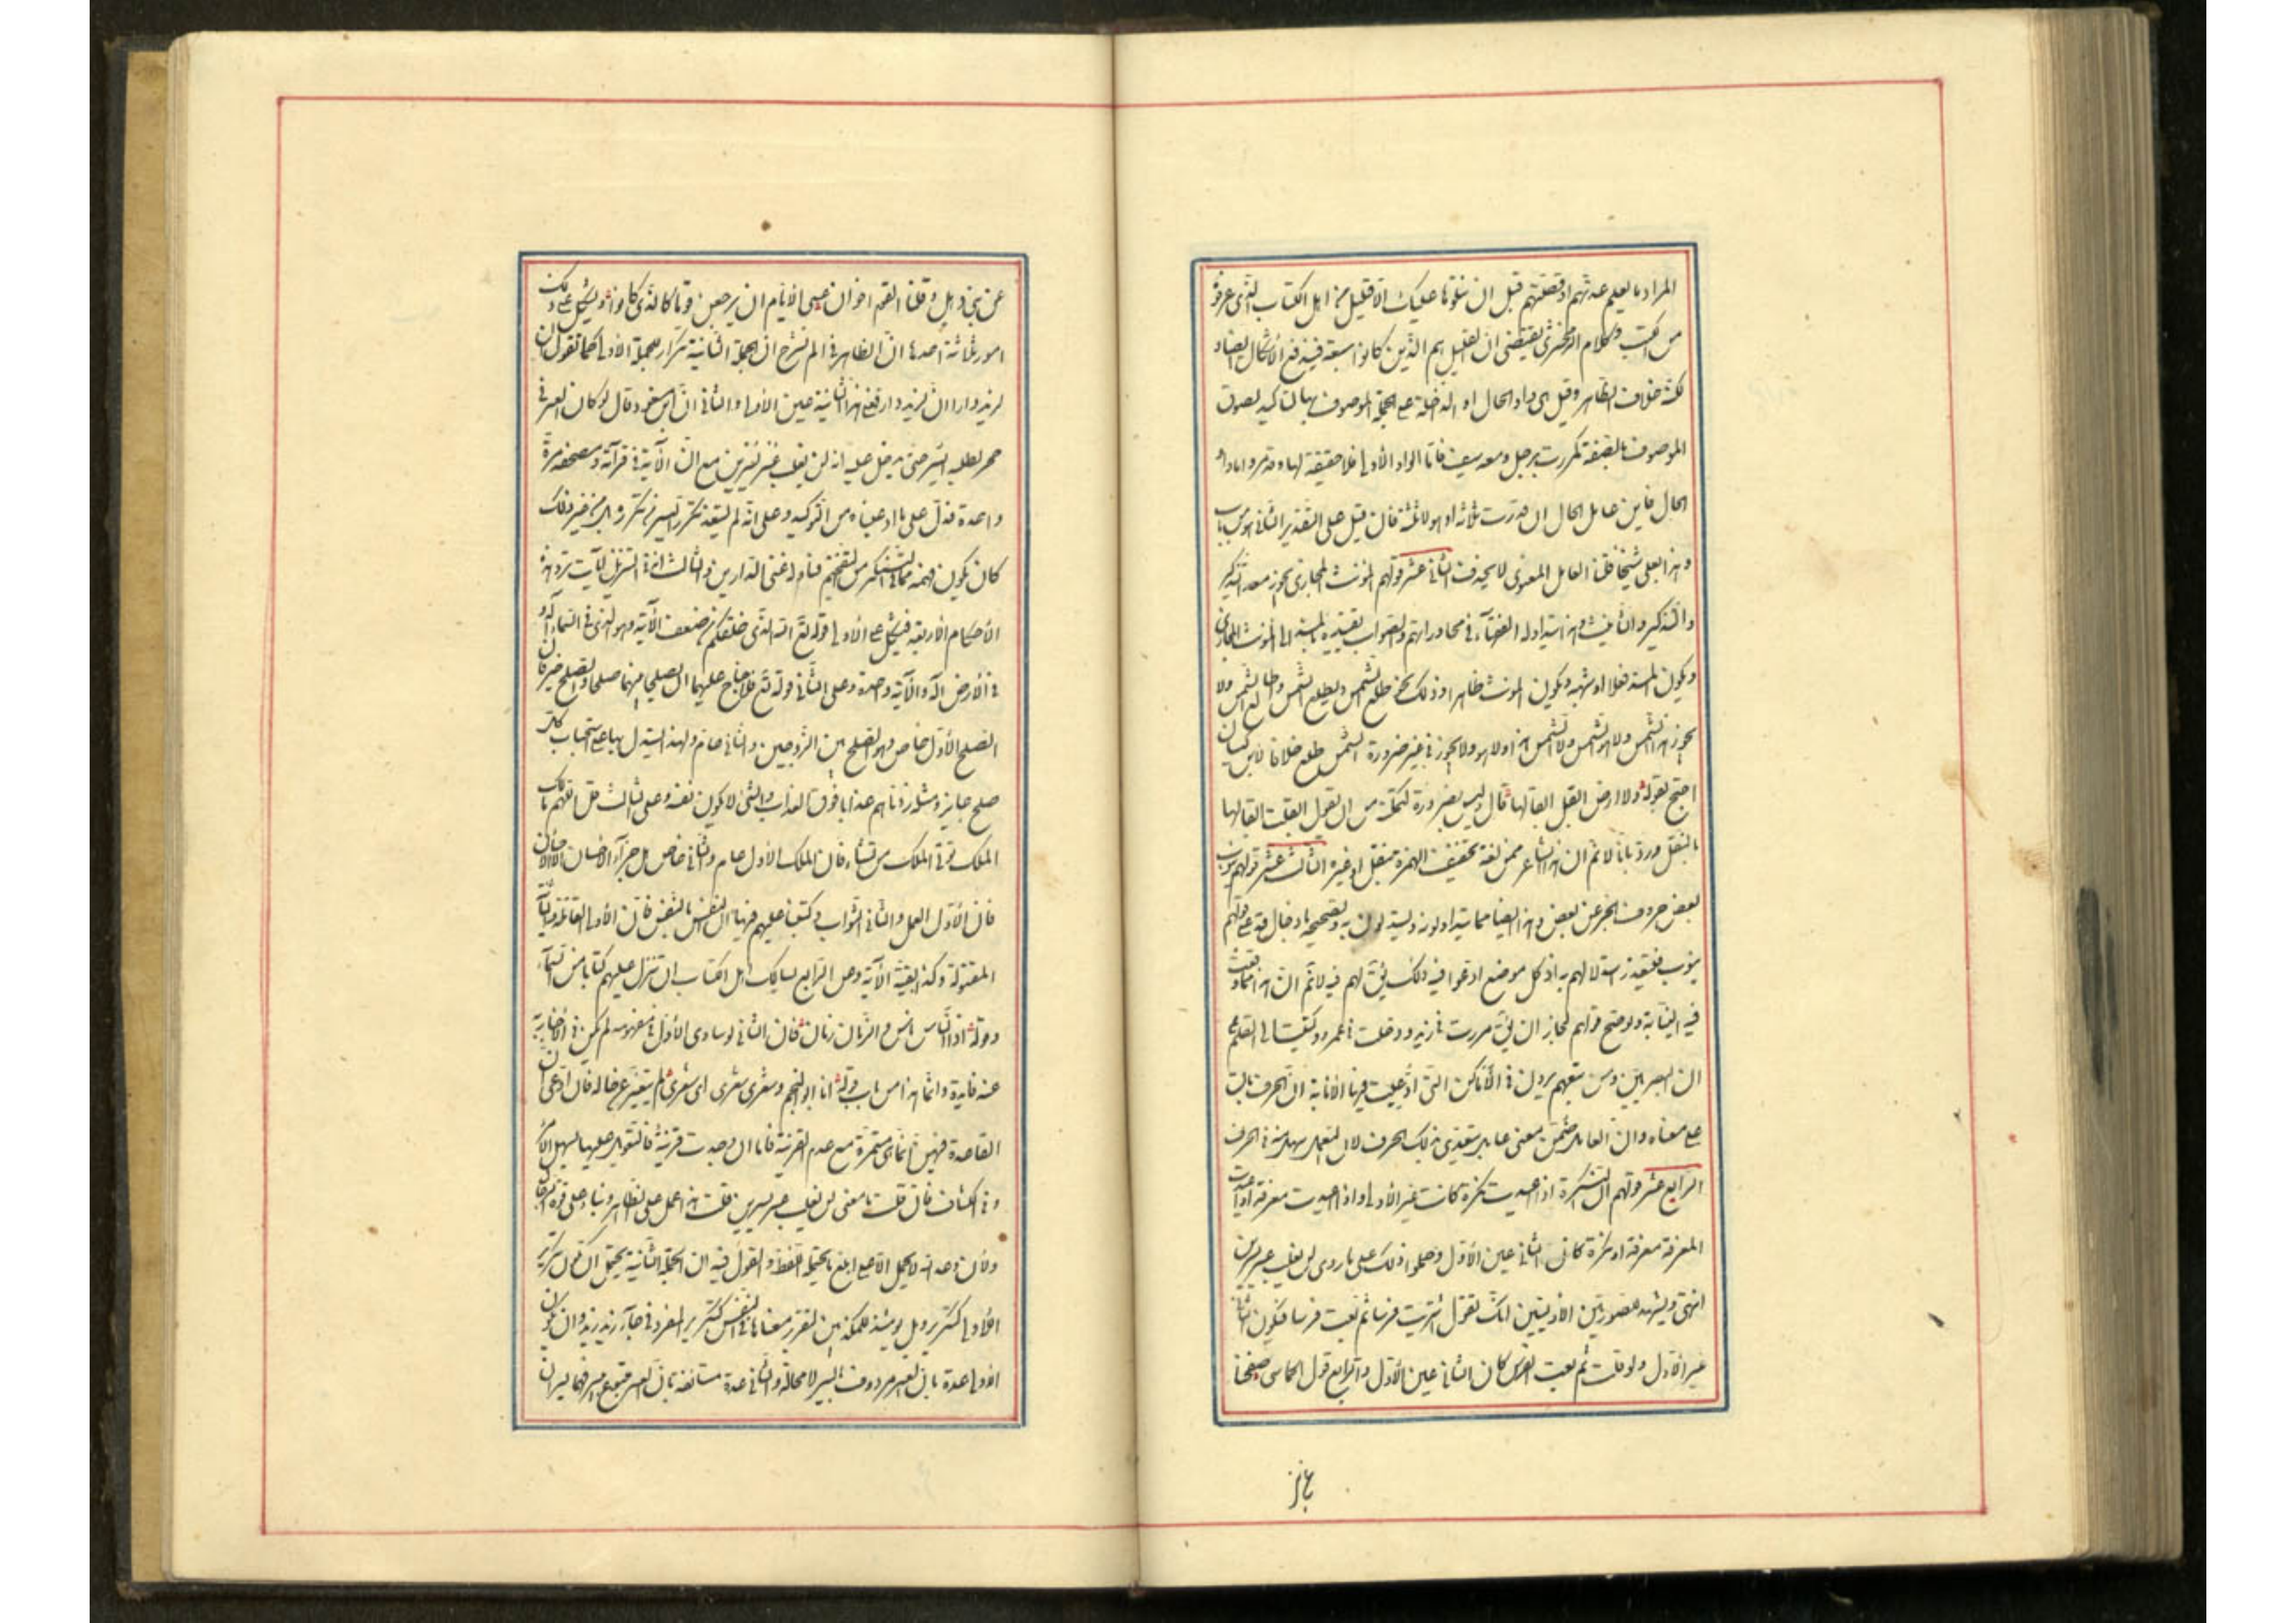 المراد ما يعلم عدتهم او قصتهم قبل ان نتلوها عليك الا قليل من اهل الكتاب الذي عرفوه
من الكتب وكلام الزمخشري يقتضي ان القليل هم الذين كانوا سبعة فيندفع الاشكال ايضا و
لكنه خلاف الظاهر وقيل هي واو الحال او الداخلة على الجملة الموصوف بها لتاكيد لصوق
الموصوف بالصفة كمررت برجل ومعه سيف فاما الواو الاولى فلا حقيقة لها واما واو
الحال فاين عامل الحال ان قدرت ثلاثة او هؤلاء ثلثة فان قيل على التقدير الثاني هو من باب
وهذا بعلي شيخا قلنا العامل المعنوي لا يحذف الثاني عشر قولهم المؤنث المجازي يجوز معه التذكير
والتذكير والتانيث وهذا يتداوله الفقهاء في محاوراتهم والصواب تقييده بالمسند الى المؤنث المجازي
وبكون المسند فعلا او شبهه وبكون المؤنث ظاهرا وذلك نحو طلع الشمس ويطلع الشمس وطالع الشمس ولا
يجوز هذا الشمس ولا هو الشمس ولا الشمس هذا ولا هو ولا يجوز في غير ضرورة الشمس طلع خلافا لابن كيسان
احتج بقوله ولا ارض ابقل ابقالها قال وليس بضرورة لتمكنه من ان يقول ابقلت ابقالها
بالنقل ورد بانا لا نسلم ان هذا الشاعر ممن لغته تخفيف الهمزة بنقل او غيره الثالث عشر قولهم ينوب
بعض حروف الجر عن بعض وهذا ايضا مما يتداولونه ويستدلون به وتصحيحه بادخال قد على قولهم
ينوب فيتعذر استدلالهم به اذ كل موضع ادعوا فيه ذلك يقال لهم فيه لا نسلم ان هذا مما وقعت
فيه النيابة ولو صح قولهم لجاز ان يقال مررت في زيد ودخلت في عمرو وكتبت الى القلم على
ان البصريين ومن تبعهم يرون في الاماكن التي ادعيت فيها النيابة ان الحرف باق
على معناه وان العامل ضمن معنى عامل يتعدى بذلك الحرف لان التجوز في الفعل اسهل منه في الحرف
الرابع عشر قولهم ان النكرة اذا اعيدت نكرة كانت غير الاولى واذا اعيدت معرفة او اعيدت
المعرفة معرفة او نكرة كان الثاني عين الاول وحملوا ذلك على ما روي لن يغلب عسر يسرين
انتهى ويشهد للصورتين الاوليين انك تقول اشتريت فرسا ثم بعت فرسا فيكون الثاني
غير الاول ولو قلت ثم بعت الفرس كان الثاني عين الاول والرابع قول الحماسي صفحنا
عن بني ذهل وقلنا القوم اخوان عسى الايام ان يرجعن قوما كالذي كانوا ويشكل على ذلك
امور ثلاثة احدها ان الظاهر في الم نشرح ان الجملة الثانية تكرار للجملة الاولى كما تقول ان
لزيد دارا ان لزيد دارا فعلى هذا الثانية عين الاولى والثاني ان ابن مسعود قال لو كان العسر في
جحر لطلبه اليسر حتى يدخل عليه انه لن يغلب عسر يسرين مع ان الآية في قرآته ومصحفه مرة
واحدة فدل على ما ادعيناه من التوكيد وعلى انه لم يستفد تكرر اليسر من تكرره بل من غير ذلك
كان يكون فهمه مما في التنكير من التفخيم فتاوله بيسر الدارين والثالث ان في التنزيل آيات ترد هذه
الاحكام الاربعة فيشكل على الاول قوله تع الله الذي خلقكم من ضعف الآية وهو الذي في السماء اله و
في الارض اله والآية واحدة وعلى الثاني قوله تع فلا جناح عليهما ان يصلحا بينهما صلحا والصلح خير فان
الصلح الاول خاص وهو الصلح بين الزوجين والثاني عام ولهذا يستدل بها على استحباب كل
صلح جايز ومثله زدناهم عذابا فوق العذاب والشئ لا يكون فوق نفسه وعلى الثالث قل اللهم مالك
الملك تؤتي الملك من تشاء فان الملك الاول عام والثاني خاص هل جزآء الاحسان الا الاحسان
فان الاول العمل والثاني الثواب وكتبنا عليهم فيها ان النفس بالنفس فان الاولى القاتلة والثانية
المقتولة وكذا بقية الآية وعلى الرابع يسالك اهل الكتاب ان تنزل عليهم كتابا من السماء
وقوله اذا الناس ناس والزمان زمان فان الثاني لو ساوى الاول في مفهومه لم يكن في الاخبار به
عنه فايدة وانما هذا من باب قوله انا ابو النجم وشعري شعري اي شعري لم يتغير عن حاله فان ادعى ان
القاعدة فيهن انما هي مستمرة مع عدم القرينة فاما ان وجدت قرينة فالتعويل عليها سهل الامر
وفي الكشاف فان قلت ما معنى لن يغلب عسر يسرين قلت هذا حمل على الظاهر وبناء على قوة الرجاء
وان وعد الله لا يحمل الا على ابلغ ما يحتمله اللفظ والقول فيه ان الجملة الثانية يحتمل ان تكون تكرير
الاولى كتكرير ويل يومئذ للمكذبين لتقرير معناها في النفس كتكرير المفرد في جآء زيد زيد وان تكون
الاولى عدة بان العسر مردوف باليسر لا محالة والثانية عدة مستانفة بان العسر متبوع بيسر فهما يسران